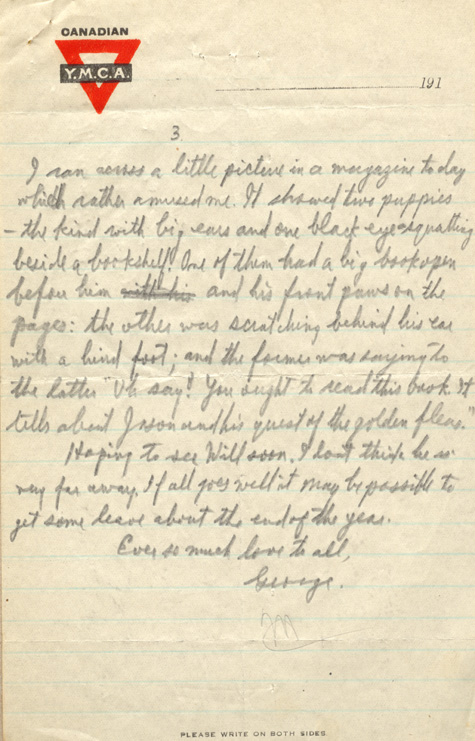 CANADIAN
Y.M.C.A.
191
3
I ran across a little picture in a magazine today
which rather amused me. It showed two puppies
– the kind with big ears and one black eye – squatting
beside a bookshelf. One of them had a big book open
before him with his and his front paws on the
pages: the other was scratching behind his ear
with a hind foot; and the former was saying to
the latter "Oh say! You ought to read this book. It
tells about Jason and his quest of the golden fleas."
Hoping to see Will soon. I don't think he is
very far away. If all goes well it may be possible to
get some leave about the end of the year.
Ever so much love to all,
George.
M
PLEASE WRITE ON BOTH SIDES